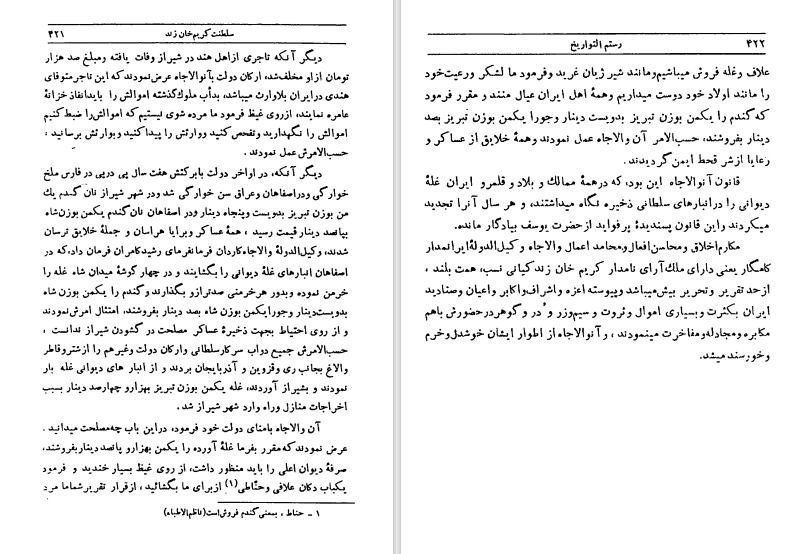 سلطنت کریم خان زند ۴۲۱
دیگر آنکه تاجری ازاهل هند در شیراز وفات یافته ومبلغ صد هزار
تومان ازاو مخلف‌شد، ارکان دولت بآنوالاجاه عرض‌نمودندکه این تاجر متوفای
هندی درایران بلاوارث میباشد، بدأب ملوک گذشته اموالش را بایدانفاذ خزانهٔ
عامره نمایند، ازروی غیظ فرمود ما مرده شوی نیستیم که اموالش‌را ضبط کنیم
اموالش را نگهدارید وتفحص کنید ووارثش را پیدا کنید و بوارثش برسانید ،
حسب‌الامرش عمل نمودند .
دیگر آنکه، در اواخر دولت بابرکتش هفت سال پی درپی در فارس ملخ
خوارگی ودراصفاهان وعراق سن خوارگی شد ودر شهر شیراز نان گندم یك
من بوزن تبریز بدویست وپنجاه دینار ودر اصفاهان نان گندم یکمن بوزن‌شاه
بپانصد دینار قیمت رسید ، همهٔ عساکر وبرایا هراسان و جملهٔ خلایق ترسان
شدند، وکیل‌الدولهٔ والاجاه‌کاردان فرمانفرمای رشیدکامران فرمان داد، که در
اصفاهان انبارهای غلهٔ دیوانی را بگشایند و در چهار گوشهٔ میدان شاه غله را
خرمن نموده وبدور هرخرمنی صدترازو بگذارند وگندم را یکمن بوزن شاه
بدویست‌دینار وجورایکمن بوزن شاه بصد دینار بفروشند، امتثال امرش‌نمودند
و از روی احتیاط بجهت ذخیرهٔ عساکر مصلحت در گشودن شیراز ندانست ،
حسب‌الامرش جمیع دواب سرکارسلطانی وارکان دولت وغیرهم را ازشتروقاطر
والاغ بجانب ری وقزوین و آذربایجان بردند و از انبار های دیوانی غله بار
نمودند و بشیراز آوردند، غله یکمن بوزن تبریز بهزارو چهارصد دینار بسبب
اخراجات منازل وراه وارد شهر شیراز شد .
آن والاجاه بامنای دولت خود فرمود، دراین باب چه‌مصلحت میدانید .
عرض نمودند که مقرر بفرما غلهٔ آورده را یکمن بهزارو پانصد دینار بفروشند،
صرفهٔ دیوان اعلی را باید منظور داشت، از روی غیظ بسیار خندید و فرمود
یکباب دکان علافی وحنّاطی(۱) ازبرای ما بگشائید ، ازقرار تقریرشماما مرد
۱ - حناط ، بمعنی گندم فروش است(ناظم‌الاطباء)
۴۲۲ رستم التواریخ
علاف وغله فروش میباشیم ومانند شیر ژیان غرید وفرمود ما لشکر ورعیت‌خود
را مانند اولاد خود دوست میداریم وهمهٔ اهل ایران عیال منند و مقرر فرمود
که گندم را یکمن بوزن تبریز بدویست دینار وجورا یکمن بوزن تبریز بصد
دینار بفروشند، حسب‌الامر آن والاجاه عمل نمودند وهمهٔ خلایق از عساکر و
رعایا ازشر قحط ایمن گردیدند .
قانون آنوالاجاه این بود، که درهمهٔ ممالک و بلاد و قلمرو ایران غلهٔ
دیوانی را درانبارهای سلطانی ذخیره نگاه میداشتند، و هر سال آنرا تجدید
میکردند واین قانون پسندیدهٔ پر فواید از حضرت یوسف بیادگار مانده.
مکارم اخلاق و محاسن افعال ومحامد اعمال والاجاه وکیل‌الدولهٔ ایرانمدار
کامگار یعنی دارای ملك آرای نامدار کریم خان زند کیانی نسب، همت بلند ،
ازحد تقریر وتحریر بیش‌میباشد وپیوسته اعزه واشراف واکابر واعیان وصنادید
ایران بکثرت وبسیاری اموال وثروت و سیم‌وزر و در وگوهر درحضورش باهم
مکابره ومجادله ومفاخرت مینمودند ، وآنوالاجاه از اطوار ایشان خوشدل‌وخرم
وخورسند میشد.